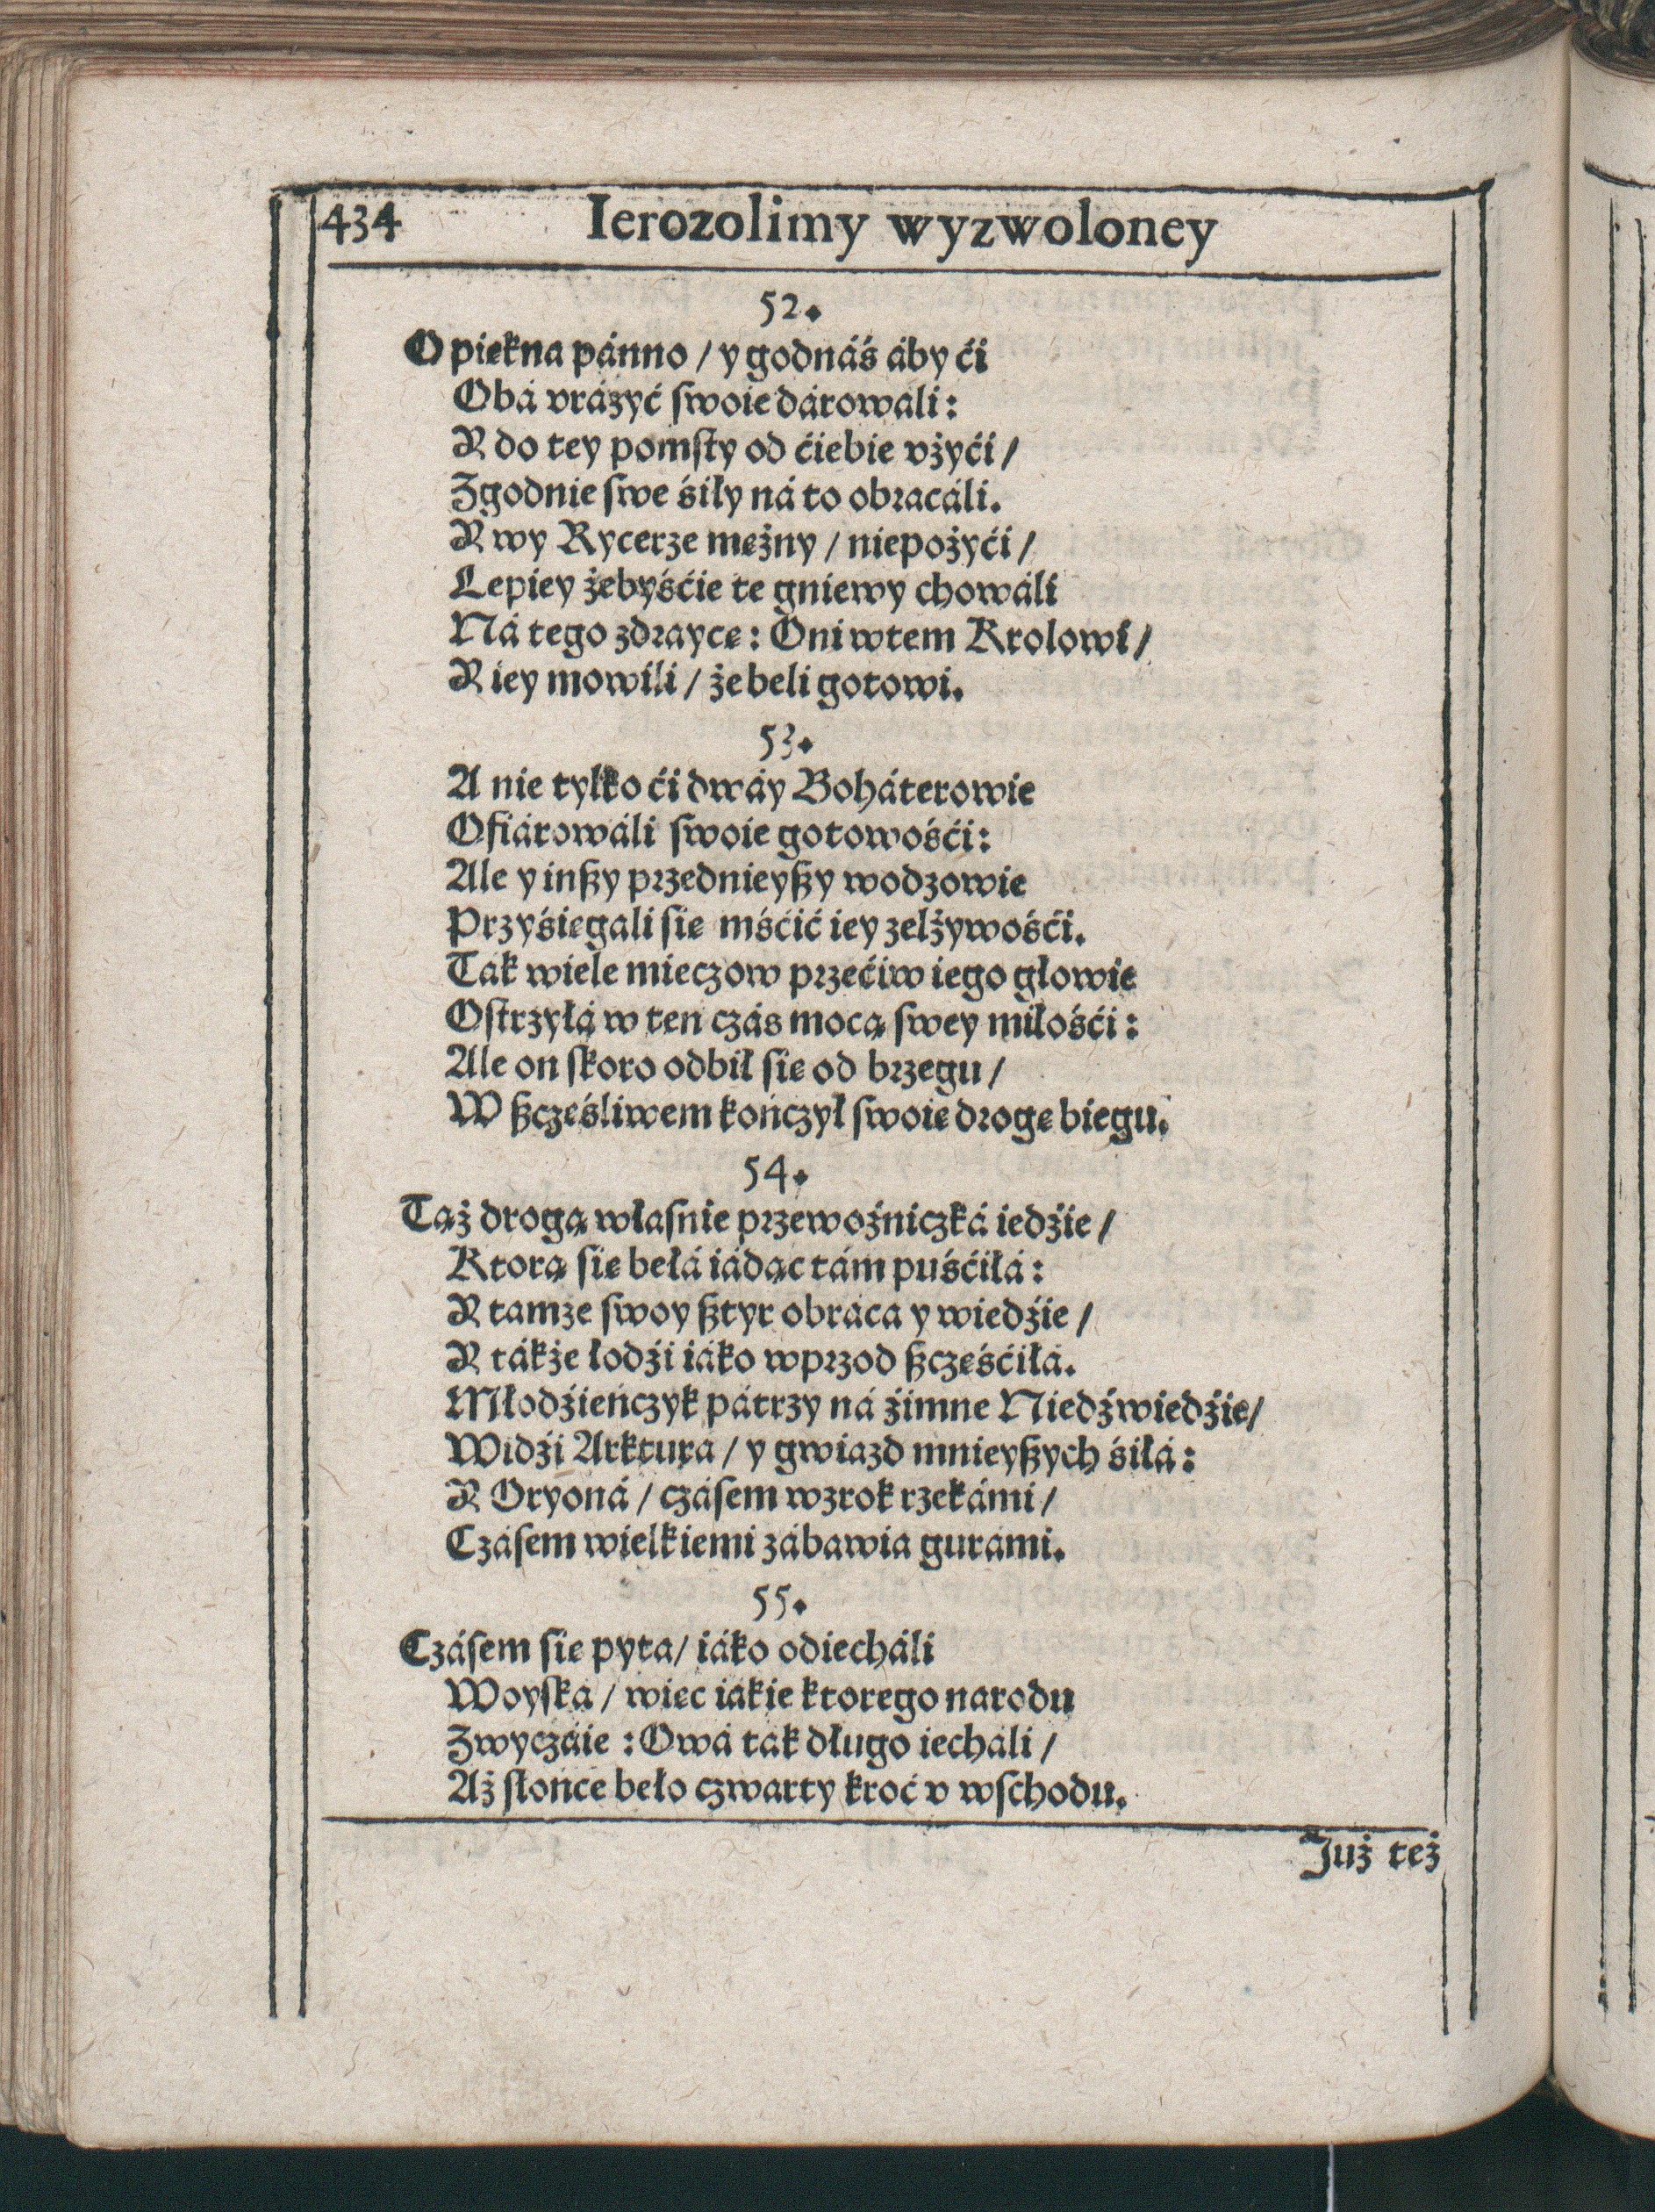 434 Ierozolimy wyzwoloney
52.
O piękna pánno / y godnáś áby ći
Obá vrázyć ſwoie dárowáli:
Y do tey pomſty od ćiebie vżyći /
Zgodnie ſwe śiły ná to obracáli.
Y wy Rycerze mężny / niepożyći /
Lepiey żebyśćie te gniewy chowáli
Ná tego zdraycę: Oni wtem Krolowi /
Y iey mowili / że beli gotowi.
53.
A nie tylko ći dwáy Boháterowie
Ofiárowáli ſwoie gotowośći:
Ale y inßy przednieyßy wodzowie
Przyśięgali ſię mśćić iey zelżywośći.
Ták wiele mieczow przećiw iego głowie
Oſtrzyłá w ten czás mocą ſwey miłośći:
Ale on ſkoro odbił ſię od brzegu /
W ßczęśliwem kończył ſwoię drogę biegu.
54.
Tąż drogą właſnie przewoźniczká iedźie /
Ktorą ſię bełá iádąc tám puśćiłá:
Y tamze ſwoy ßtyr obráca y wiedźie /
Y tákże łodźi iáko wprzod ßczęśćiłá.
Młodźieńczyk pátrzy ná źimne Niedźwiedźie /
Widźi Arkturá / y gwiazd mnieyßych śiłá:
Y Oryoná / czáſem wzrok rzekámi /
Czáſem wielkiemi zábawia gurámi.
55.
Czáſem ſię pyta / iáko odiecháli
Woyſká / więc iákie ktorego narodu
Zwyczáie: Owá ták długo iecháli /
Aż ſłońce beło czwarty kroć v wſchodu.
Już też